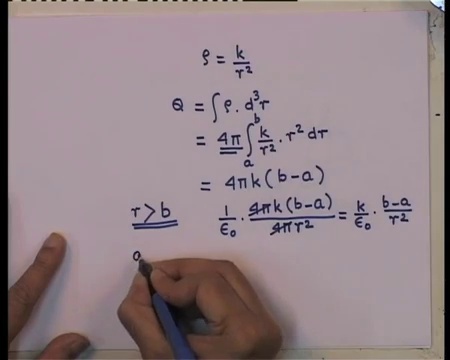 ρ = k/r²
Q = ∫ρ. d³r
= 4π ∫ₐᵇ k/r² · r² dr
= 4πk(b-a)
r>b 1/ε₀ · 4πk(b-a)/4πr² = k/ε₀ · b-a/r²
a